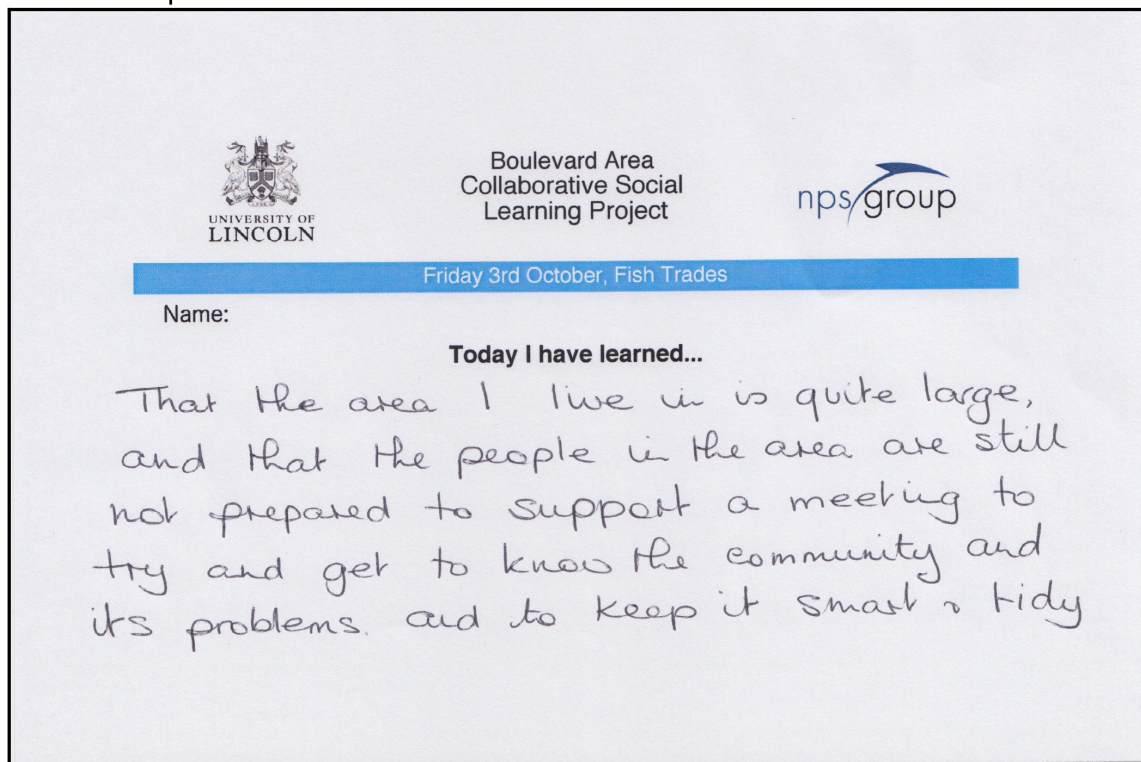 UNIVERSITY OF
LINCOLN
Boulevard Area
Collaborative Social
Learning Project
nps group
Friday 3rd October, Fish Trades
Name:
Today I have learned...
That the area I live in is quite large,
and that the people in the area are still
not prepared to support a meeting to
try and get to know the community and
its problems. and to keep it smart & tidy